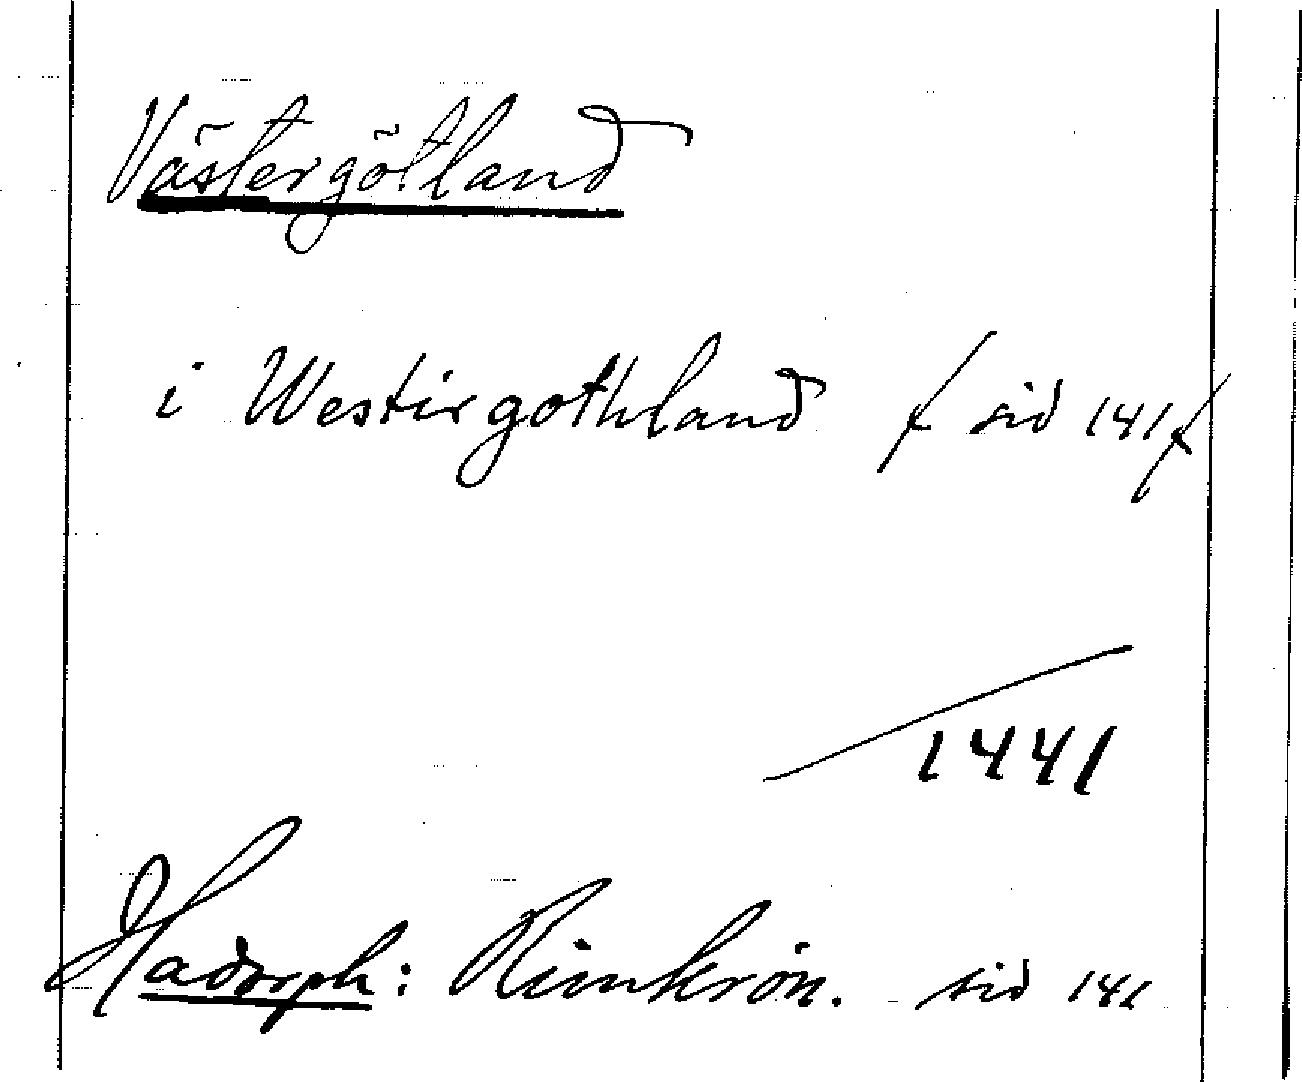 Västergötland
i Westirgothland / sid 141/
1441
Hadorph: Rimkrön. sid 141